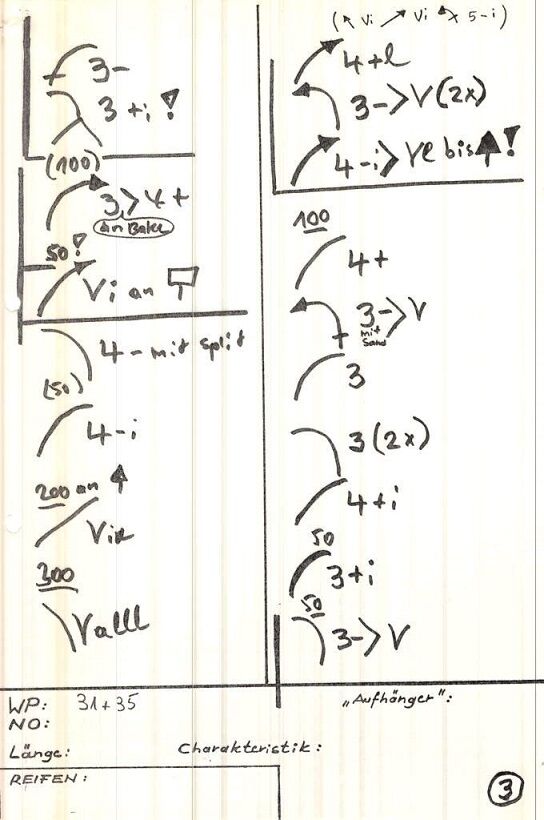 3-
3+i!
(100)
3>4+
an Bake
50!
Vi an
4-mit split
(50)
4-i
200 an
Vix
300
Valll
(Vi Vi 5-i)
4+l
3->V(2x)
4-i>Vl bis !
100
4+
3->V
mit
Sand
3
3(2x)
4+i
50
3+i
50
3->V
WP: 31+35
NO:
Länge: Charakteristik:
REIFEN:
"Aufhänger":
3